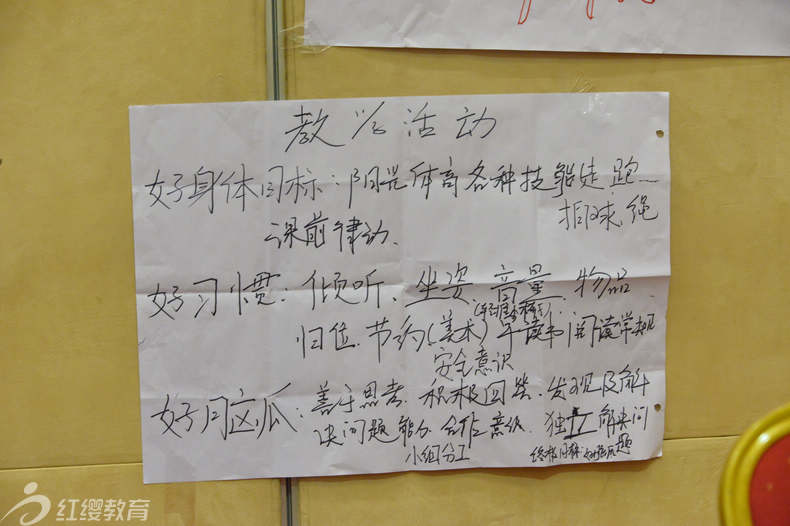 教学活动
好身体目标：阳光体育各种技能走跑
拍球.绳
课前律动、
好习惯：倾听、坐姿、音量、物品
归位、节约(美术)早读书阅读常规
安全意识
好口区瓜：善于思考、积极回答、发现及解
决问题能力 合作意识、独立解决问
小组分工
题
红缨教育